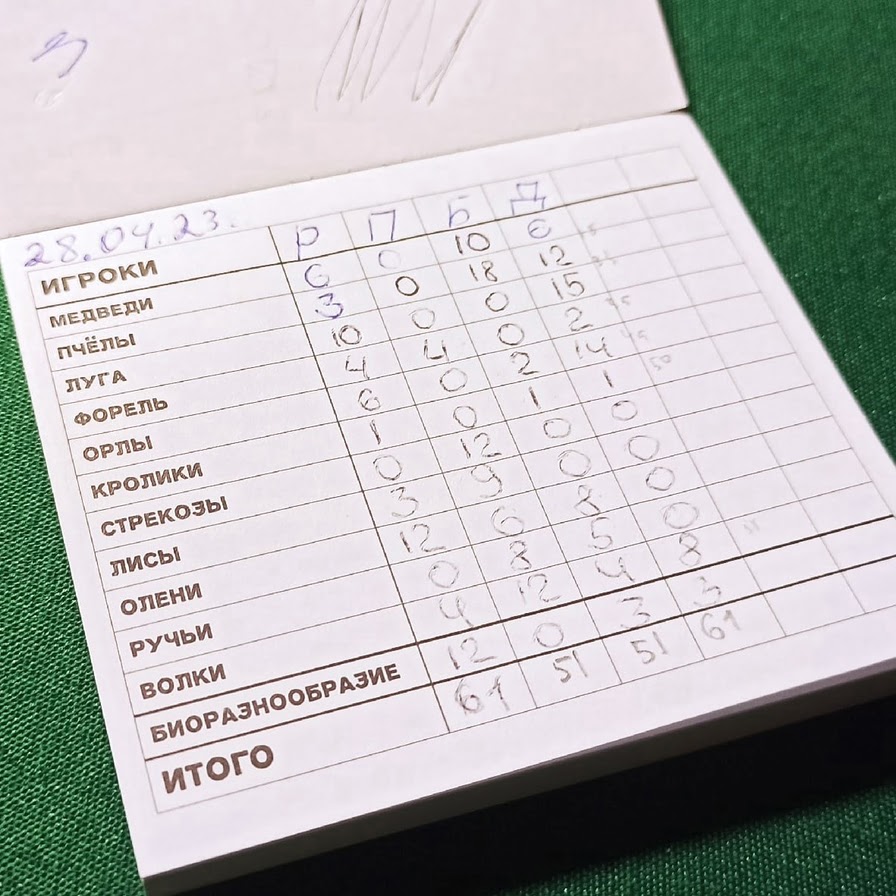 28.04.23.
ИГРОКИ Р П Б Д
МЕДВЕДИ 6 0 10 6
ПЧЁЛЫ 3 0 18 12
ЛУГА 10 0 0 15
ФОРЕЛЬ 4 4 0 2
ОРЛЫ 6 0 2 14
КРОЛИКИ 1 0 1 1
СТРЕКОЗЫ 0 12 0 0
ЛИСЫ 3 9 0 0
ОЛЕНИ 12 6 8 0
РУЧЬИ 0 8 5 0
ВОЛКИ 4 12 4 8
БИОРАЗНООБРАЗИЕ 12 0 3 3
ИТОГО 61 51 51 61